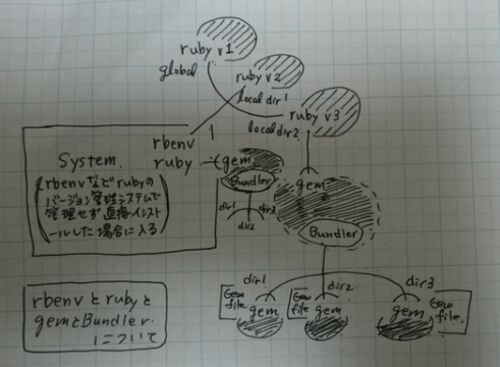 ruby v1
global
ruby v2
local dir1
ruby v3
local dir2
rbenv
System.
ruby
gem
Bundler
(rbenvなどrubyの
バージョン管理システムで
管理せず直接インスト
ールした場合に入る)
dir1
dir2
dir3
gem
Bundler
dir1
dir2
dir3
Gem
file
gem
Gem
file
gem
Gem
file.
gem
rbenvとrubyと
gemとBundler.
について